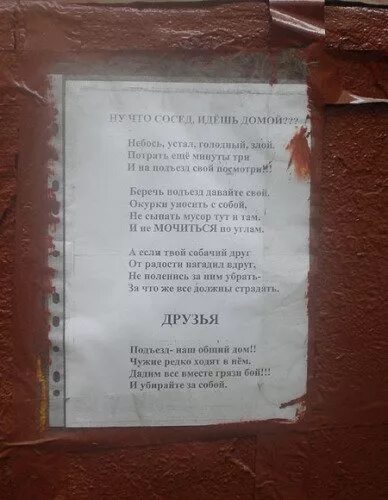 НУ ЧТО СОСЕД, ИДЁШЬ ДОМОЙ???
Небось, устал, голодный, злой.
Потрать ещё минуты три
И на подъезд свой посмотри!!!
Беречь подъезд давайте свой.
Окурки уносить с собой,
Не сыпать мусор тут и там.
И не МОЧИТЬСЯ по углам.
А если твой собачий друг
От радости нагадил вдруг,
Не поленись за ним убрать-
За что же все должны страдать.
ДРУЗЬЯ
Подъезд- наш общий дом!!
Чужие редко ходят в нём.
Дадим все вместе грязи бой!!!
И убирайте за собой.